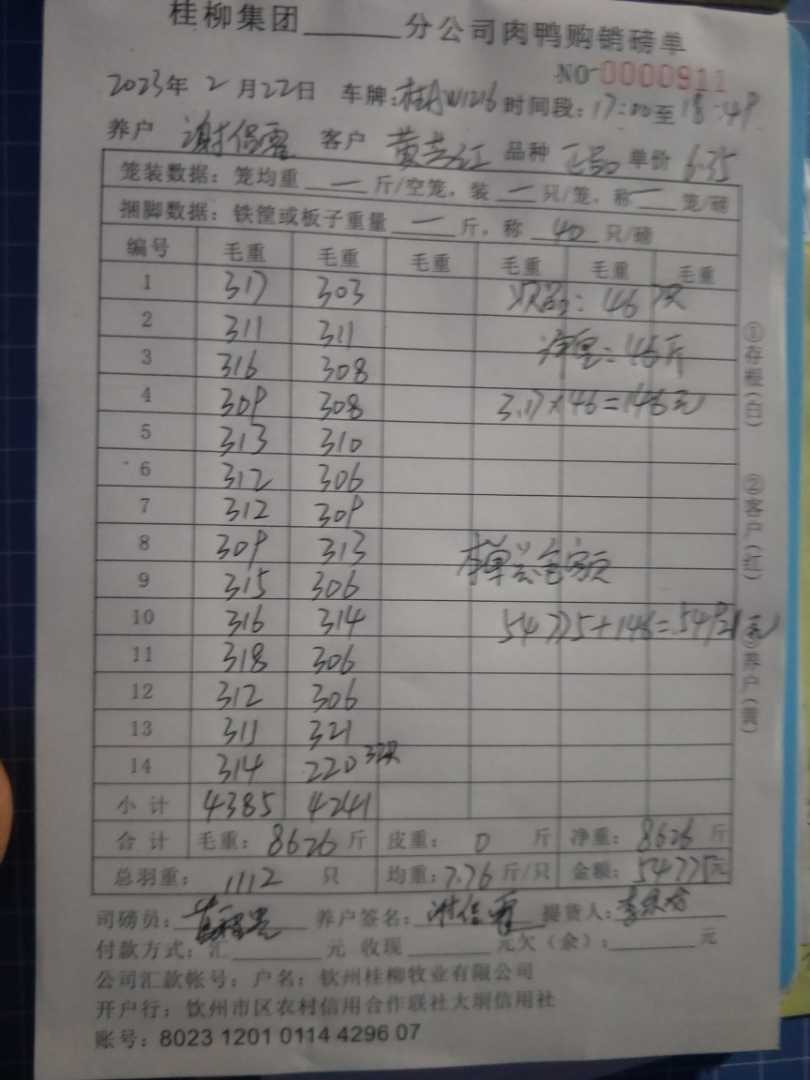 桂柳集团______分公司肉鸭购销磅单
NO 0000911
2023年 2月22日 车牌:桂AW1216 时间段:17:00至18:49
养户 谢侣霞 客户 黄 江 品种 正品 单价 6.35
笼装数据:笼均重 一 斤/空笼,装 一 只/笼,称 一 笼/磅
捆脚数据:铁筐或板子重量 一 斤,称 40 只/磅
编号 毛重 毛重 毛重 毛重 毛重 毛重
1 317 303 次品:46只
2 311 311 净重:146斤
3 316 308
4 309 308 3.17×46=146元
5 313 310
6 312 306
7 312 309
8 309 313 本单总金额
9 315 306
10 316 314 54775+146=54921元
11 318 306
12 312 306
13 311 321
14 314 220 32只
小计 4385 4241
合计 毛重:8626斤 皮重:0斤 净重:8626斤
总羽重:1112只 均重:7.76斤/只 金额:54775元
司磅员: 养户签名: 提货人:
付款方式:汇______元 收现______元欠(余):______元
公司汇款帐号:户名:钦州桂柳牧业有限公司
开户行:钦州市区农村信用合作联社大垌信用社
账号:8023 1201 0114 4296 07
①存根(白)
②客户(红)
③养户(黄)